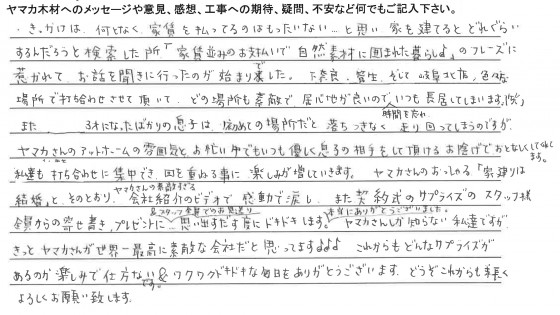 ヤマカ木材へのメッセージや意見、感想、工事への期待、疑問、不安など何でもご記入下さい。
・きっかけは、何となく家賃を払ってるのはもったいない…と思い家を建てるとどれぐらい
するんだろうと検索した所「家賃並みのお支払いで自然素材に囲まれた暮らし♪」のフレーズに
惹かれて、お話を聞きに行ったのが始まりでした。下奈良、笠生、そして岐阜に大、色々な
場所で打ち合わせさせて頂いて、どの場所も素敵で居心地が良いのでいつも時間を忘れ長居してしまいます。
また 3才になったばかりの息子は、初めての場所だと落ちつきなく走り回ってしまうのですが、
ヤマカさんのアットホームの雰囲気とお忙しい中でもいつも優しく息子の相手をして頂けるお陰でおとなしくしてくれ
私達も打ち合わせに集中でき、回を重ねる事に楽しみが増していきます。ヤマカさんのおっしゃる「家造りは
結婚」と、そのとおり、ヤマカさんの素敵すぎる会社紹介のビデオで感動で涙し、また契約式のサプライズのスタッフ様
全員からの寄せ書き、プレゼントに…&スタッフ全員でのお見送り思い出すたび度にドキドキします。本当にありがとうございました。ヤマカさんしか知らない私達ですが、
きっとヤマカさんが世界一最高に素敵な会社だと思ってます♪♪♪ これからもどんなサプライズが
あるのか楽しみで仕方ないです。&ワクワクドキドキな毎日をありがとうございます。どうぞこれからも末長く
よろしくお願い致します。